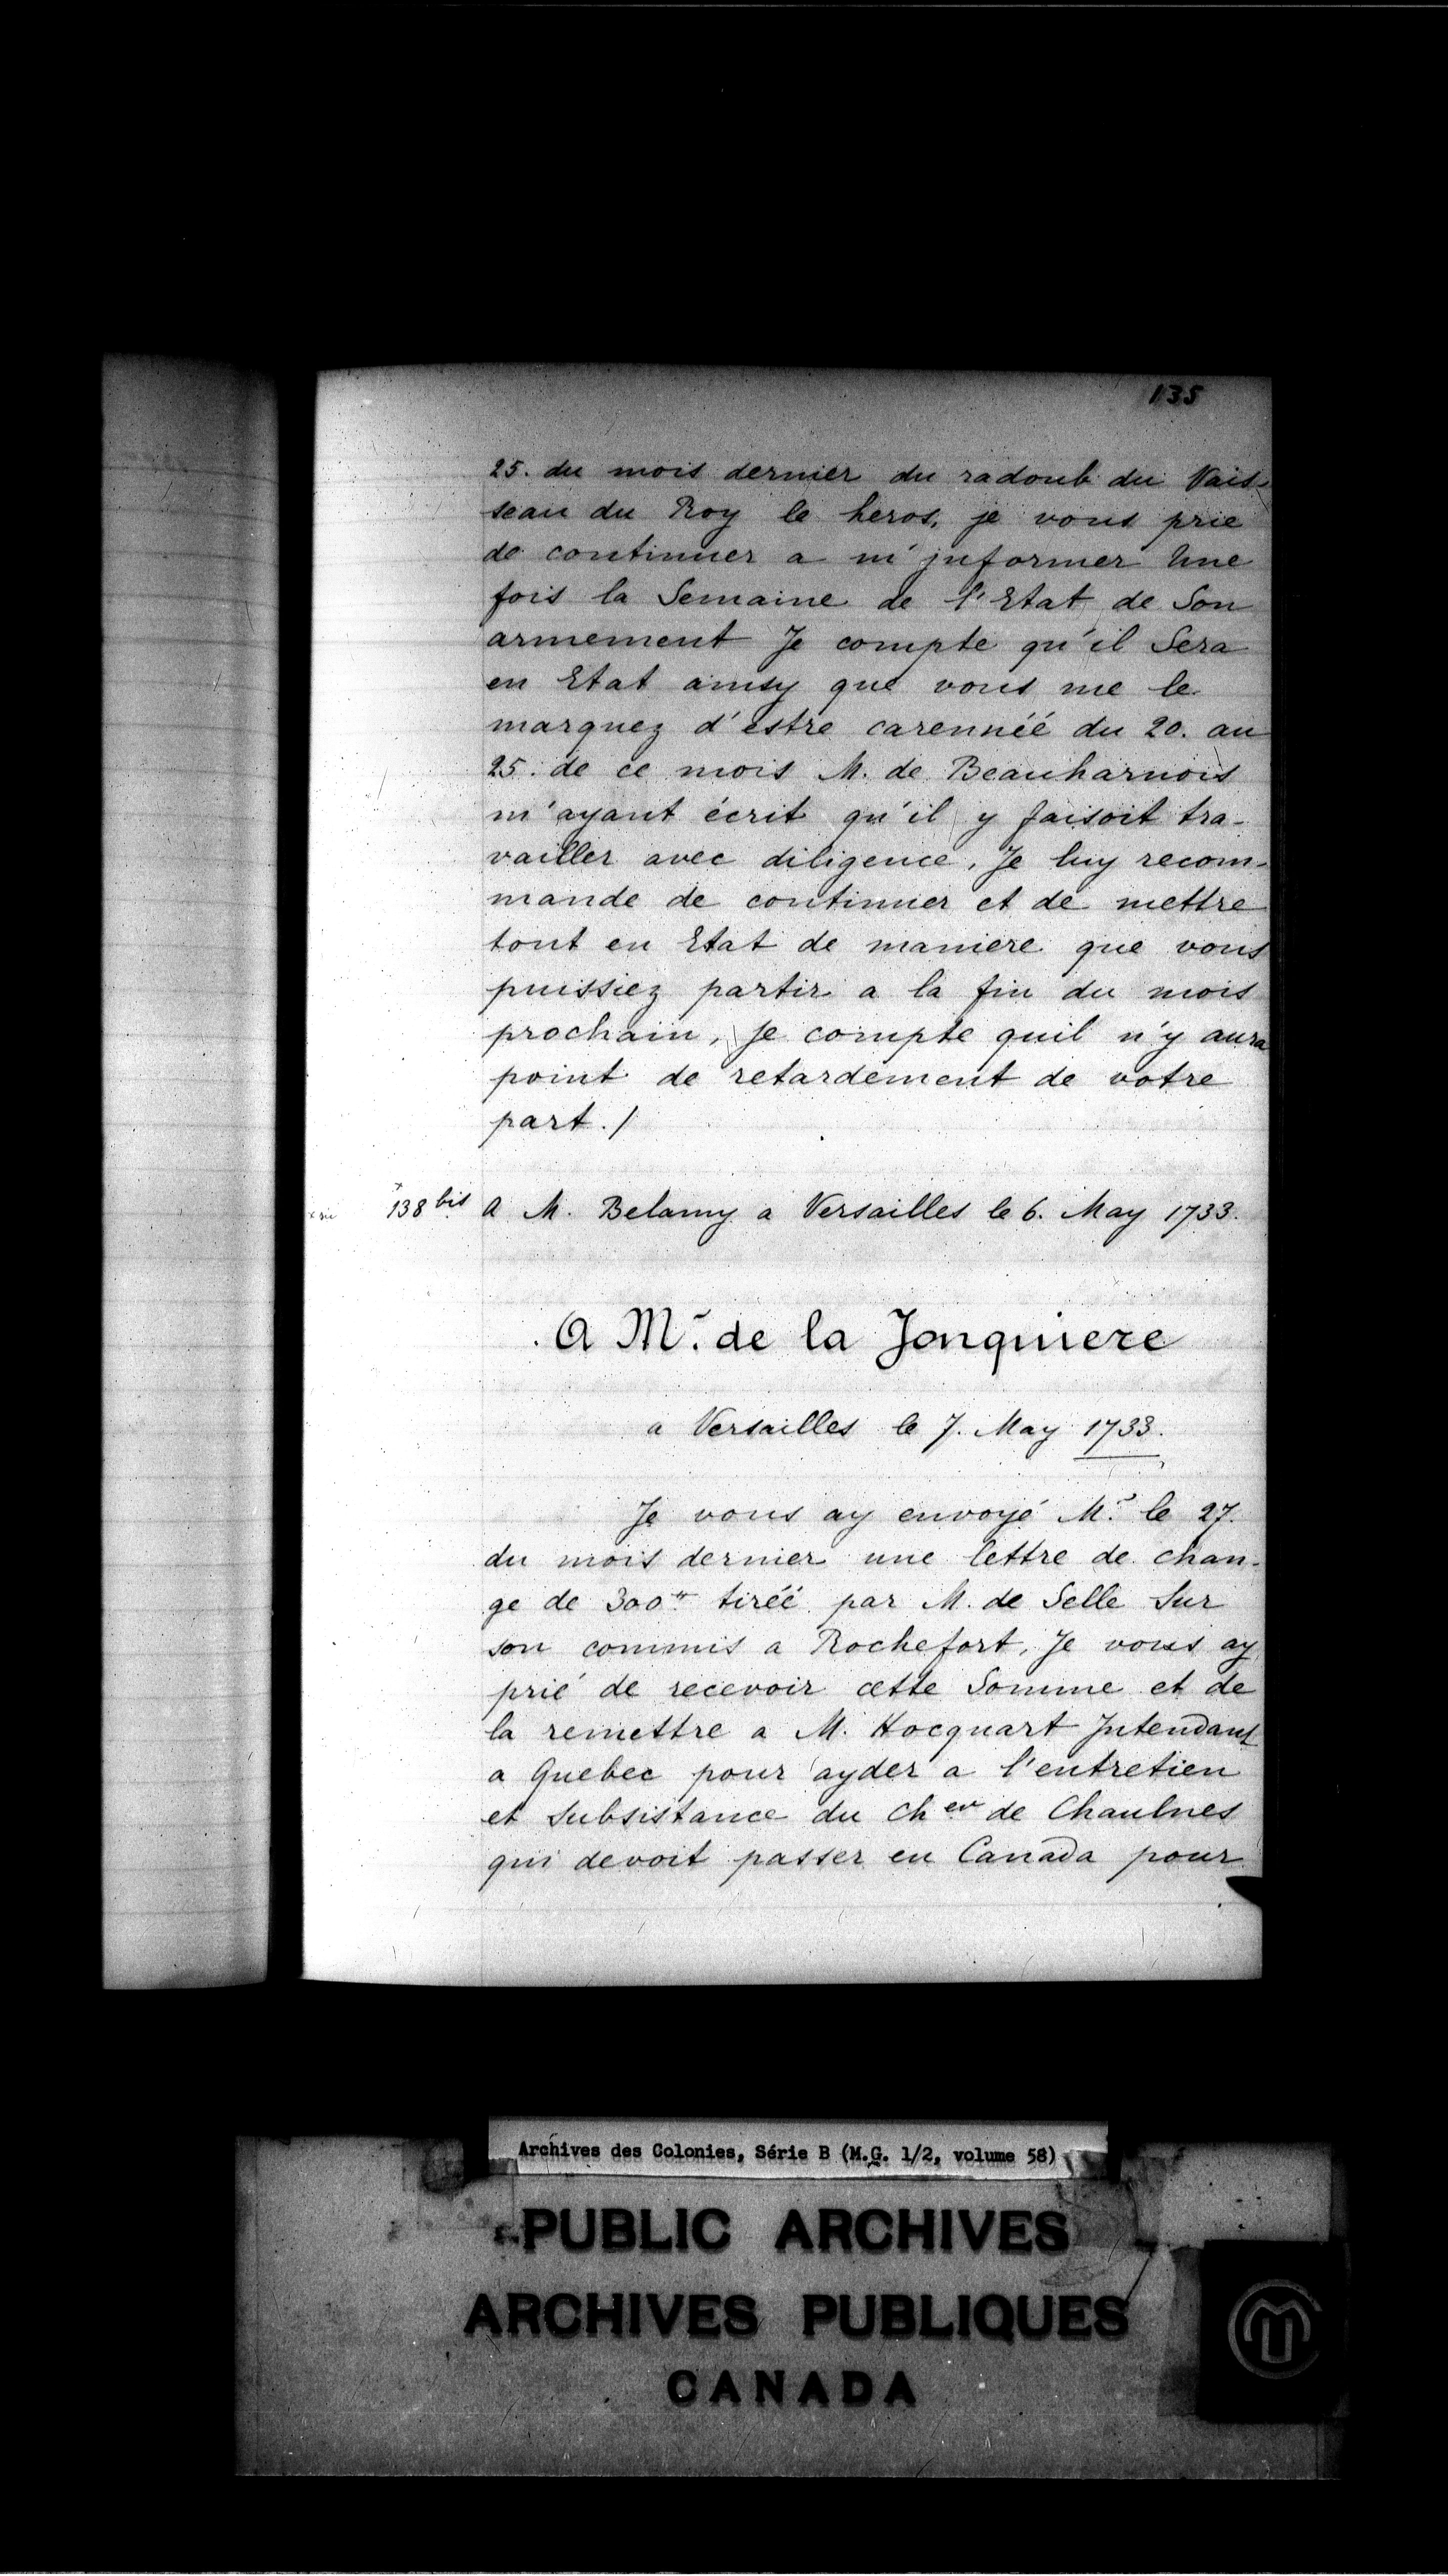 135
25. du mois dernier du radoub du Vais-
seau du Roy le heros, je vous prie
de continuer a m'jnformer Une
fois la Semaine de l'Etat de Son
armement Je compte qu'il Sera
en Etat ainsy que vous me le
marquez d'estre carennéé du 20. au
25. de ce mois M. de Beauharnois
m'ayant écrit qu'il y faisoit tra-
vailler avec diligence, Je luy recom-
mande de continuer et de mettre
tout en Etat de maniere que vous
puissiez partir a la fin du mois
prochain, Je compte quil n'y aura
point de retardement de votre
part./
138 bis A M. Belamy a Versailles le 6. May 1733.
A Mr. de la Jonquiere
a Versailles le 7. May 1733.
Je vous ay envoyé Mr. le 27.
du mois dernier une lettre de chan-
ge de 300tt tiréé par M. de Selle Sur
son commis a Rochefort, Je vous ay
prié de recevoir cette Somme et de
la remettre a M. Hocquart Jntendant
a Quebec pour ayder a l'entretien
et Subsistance du Cher de Chaulnes
qui devoit passer en Canada pour
Archives des Colonies, Série B (M.G. 1/2, volume 58)
PUBLIC ARCHIVES
ARCHIVES PUBLIQUES
CANADA